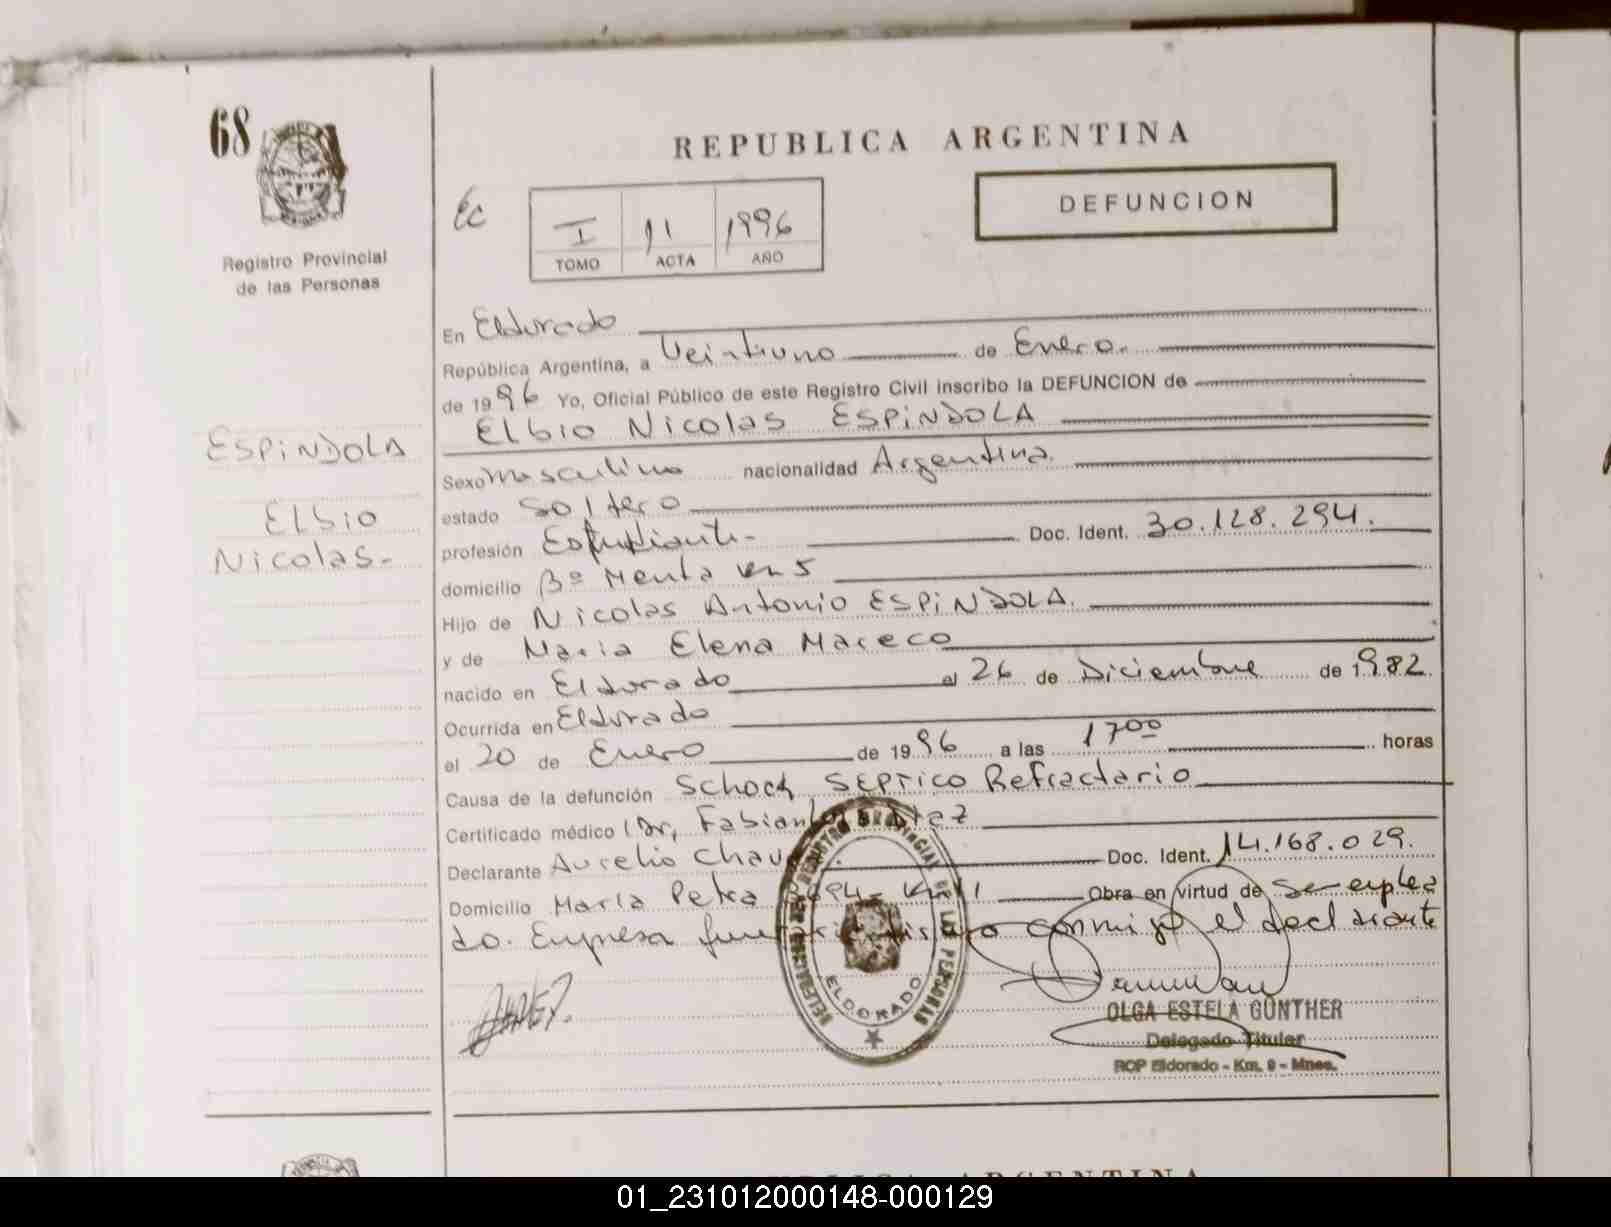 68
REPUBLICA ARGENTINA
Registro Provincial
de las Personas
Ec
I 11 1996
TOMO ACTA AÑO
DEFUNCION
ESPINDOLA
ELbio
Nicolas-
En Eldorado
República Argentina, a Veintiuno de Enero.
de 1996 Yo, Oficial Público de este Registro Civil inscribo la DEFUNCION de
ELbio Nicolas ESPINDOLA
Sexo masculino nacionalidad Argentina.
estado Soltero
profesión Estudiante- Doc. Ident. 30.128.294.
domicilio Bº Menta Km 5
Hijo de Nicolas Antonio ESPINDOLA.
y de Maria Elena Maceco
nacido en Eldorado el 26 de Diciembre de 1982
Ocurrida en Eldorado
el 20 de Enero de 1996 a las 17⁰⁰ horas
Causa de la defunción Schock SEPTICO Refractario
Certificado médico Dr, Fabian
Declarante Aurelio Doc. Ident. 14.168.029.
Domicilio Maria Petra Obra en virtud de Ser emplea
do. Empresa conmigo el declarante
DELEGACION DEL REGISTRO PROVINCIAL DE LAS PERSONAS
ELDORADO
OLGA ESTELA GÜNTHER
Delegado Titular
RCP Eldorado - Km. 9 - Mnes.
REPUBLICA ARGENTINA
01_231012000148-000129